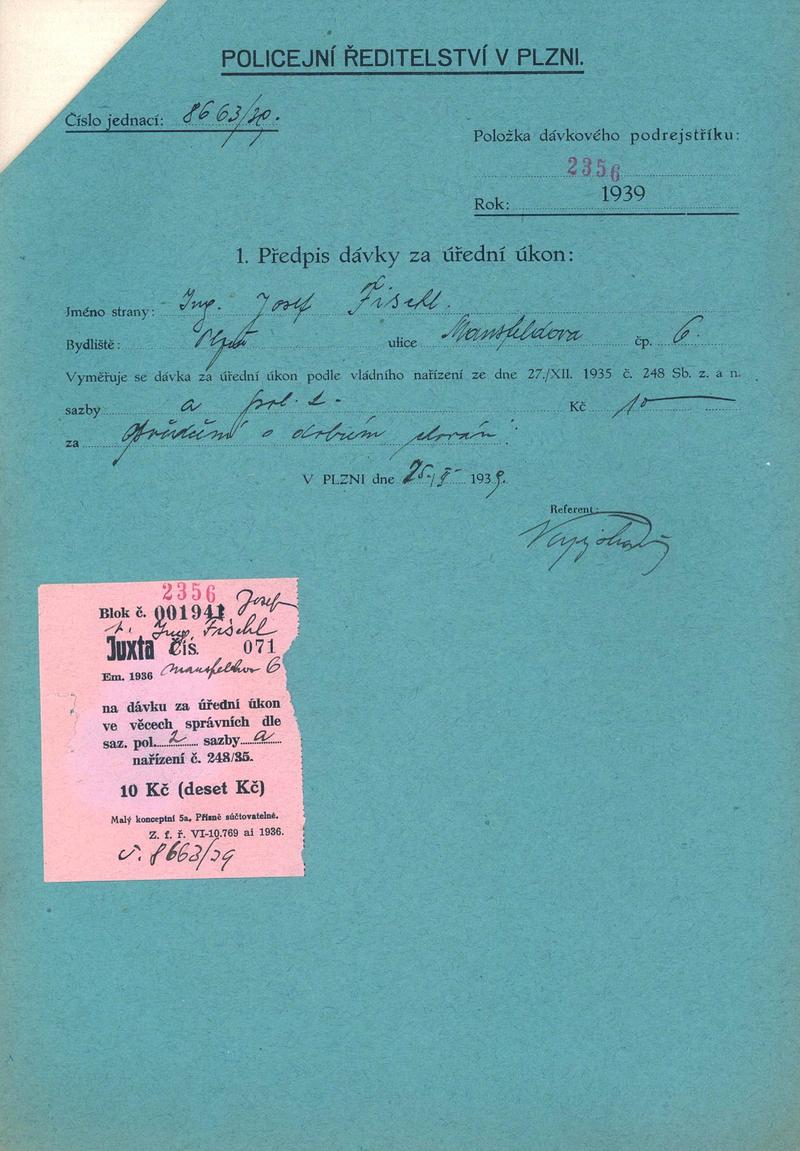 POLICEJNÍ ŘEDITELSTVÍ V PLZNI.
Číslo jednací: 8663/39.
Položka dávkového podrejstříku:
2356
Rok: 1939
1. Předpis dávky za úřední úkon:
Jméno strany: Ing. Josef Fischl.
Bydliště: Plzeň ulice Mansfeldova čp. 6.
Vyměřuje se dávka za úřední úkon podle vládního nařízení ze dne 27./XII. 1935 č. 248 Sb. z. a n.
sazby a pol. 2 - Kč 10
za o
V PLZNI dne 25./ 1939.
Referent:
2356
Blok č. 001941 Josef
Ing. Fischl
Juxta Čís. 071
Em. 1936 Mansfeldova 6
na dávku za úřední úkon
ve věcech správních dle
saz. pol. 2 sazby a
nařízení č. 248/35.
10 Kč (deset Kč)
Malý konceptní 5a. Přísně súčtovatelné.
Z. f. ř. VI-10.769 ai 1936.
č. 8663/39